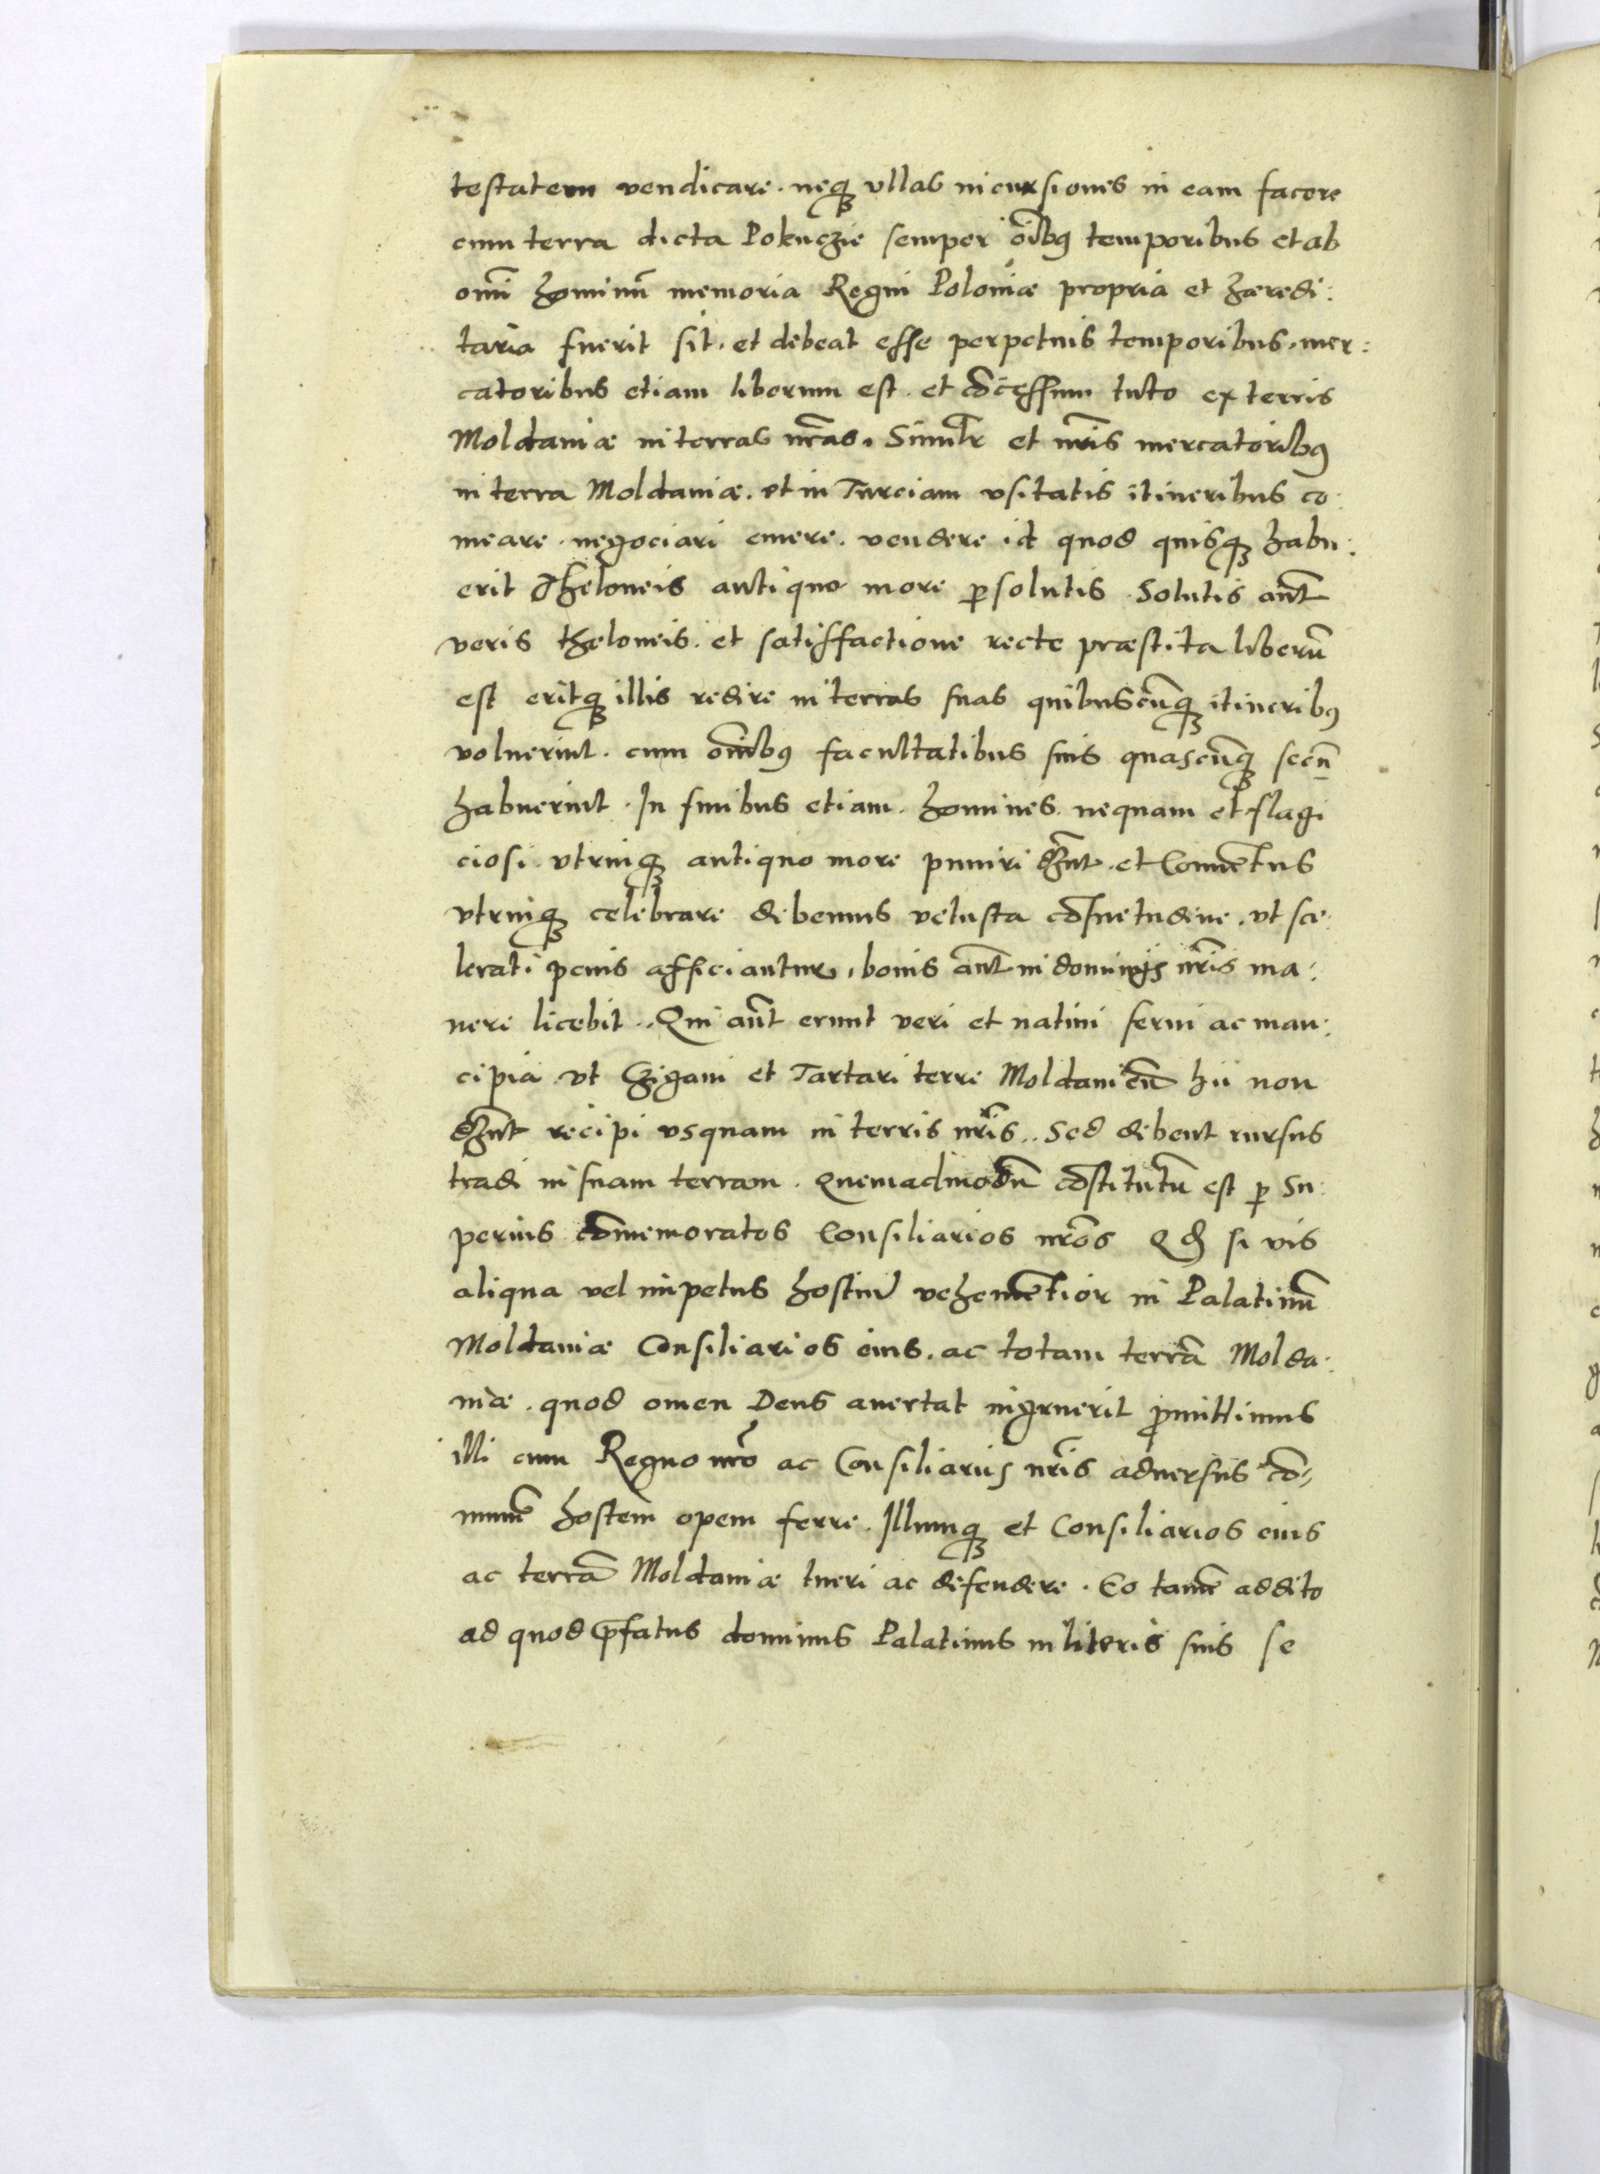 testatem vendicare. neqȝ vllas incursiones in eam facere
cum terra dicta Pokuczie semper oībꝰ temporibus et ab
omī hominū memoria Regni Poloniæ propria et hæredi:
taria fuerit sit. et debeat esse perpetuis temporibus. mer:
catoribus etiam liberum est. et cōcessum tuto ex terris
Moldauiæ in terras nr̄as. Similr̄ et nr̄is mercatoribꝰ
in terra Moldauiæ. et in Turciam vsitatis itineribus co:
meare. negociari emere. vendere id quod quisqȝ habu:
erit Theloneis antiquo more ꝑsolutis. Solutis aūt
veris theloneis. et satisfactione recte præstita liberū
est eritqȝ illis redire in terras suas quibuscūqȝ itineribꝰ
voluerint. cum omībꝰ facultatibus suis quascūqȝ secū
habuerint. In finibus etiam. homines nequam et flagi
ciosi vtrinqȝ antiquo more puniri dn̄t. et Conuētus
vtrinqȝ celebrare debemus vetusta cōsuetudine. vt sce:
lerati penis afficiantur, bonis aūt in dominijs nr̄is ma:
nere licebit.. Qui aūt erunt veri et natiui serui ac man:
cipia vt Czigani et Tartari terre Moldauieñ hii non
dn̄t recipi vsquam in terris nr̄is.. Sed debent rursus
tradi in suam terram. Quemadmodū cōstitutū est ꝑ Su:
perius cōmemoratos Consiliarios nr̄os Qđ si vis
aliqua vel impetus hostiū vehemētior in Palatinū
Moldauiæ Consiliarios eius. ac totam terrā Molda:
uiæ. quod omen Deus auertat ingruerit ꝓmittimus
illi cum Regno nr̄o ac Consiliarijs nr̄is aduersus cō:
munē hostem opem ferre. Illumqȝ et Consiliarios eius
ac terrā Moldauiæ tueri ac defendere. Eo tamē addito
ad quod p̄fatus dominus Palatinus in literis suis se